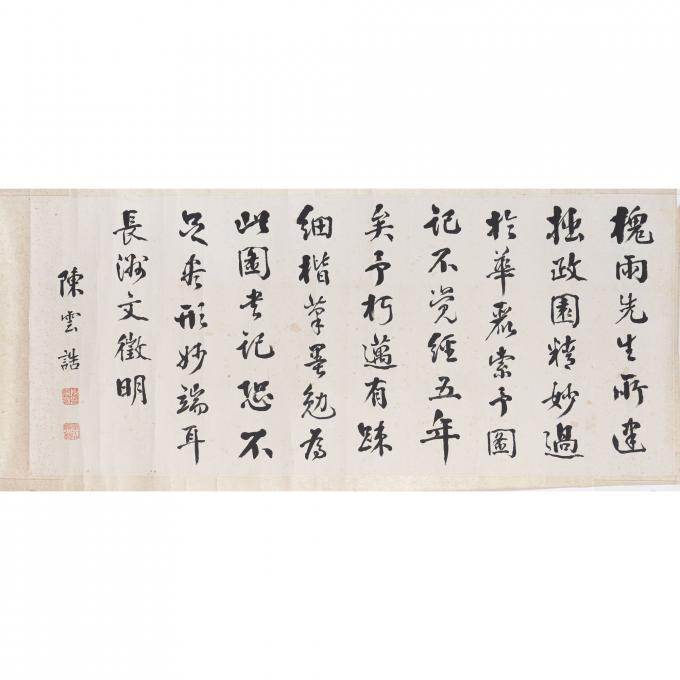 槐雨先生所建
拙政園精妙過
於華麗索予圖
記不覺經五年
矣予朽邁有踈
細楷筆墨勉為
此圖書記恐不
足盡形妙端耳
長洲文徵明
陳雲誥